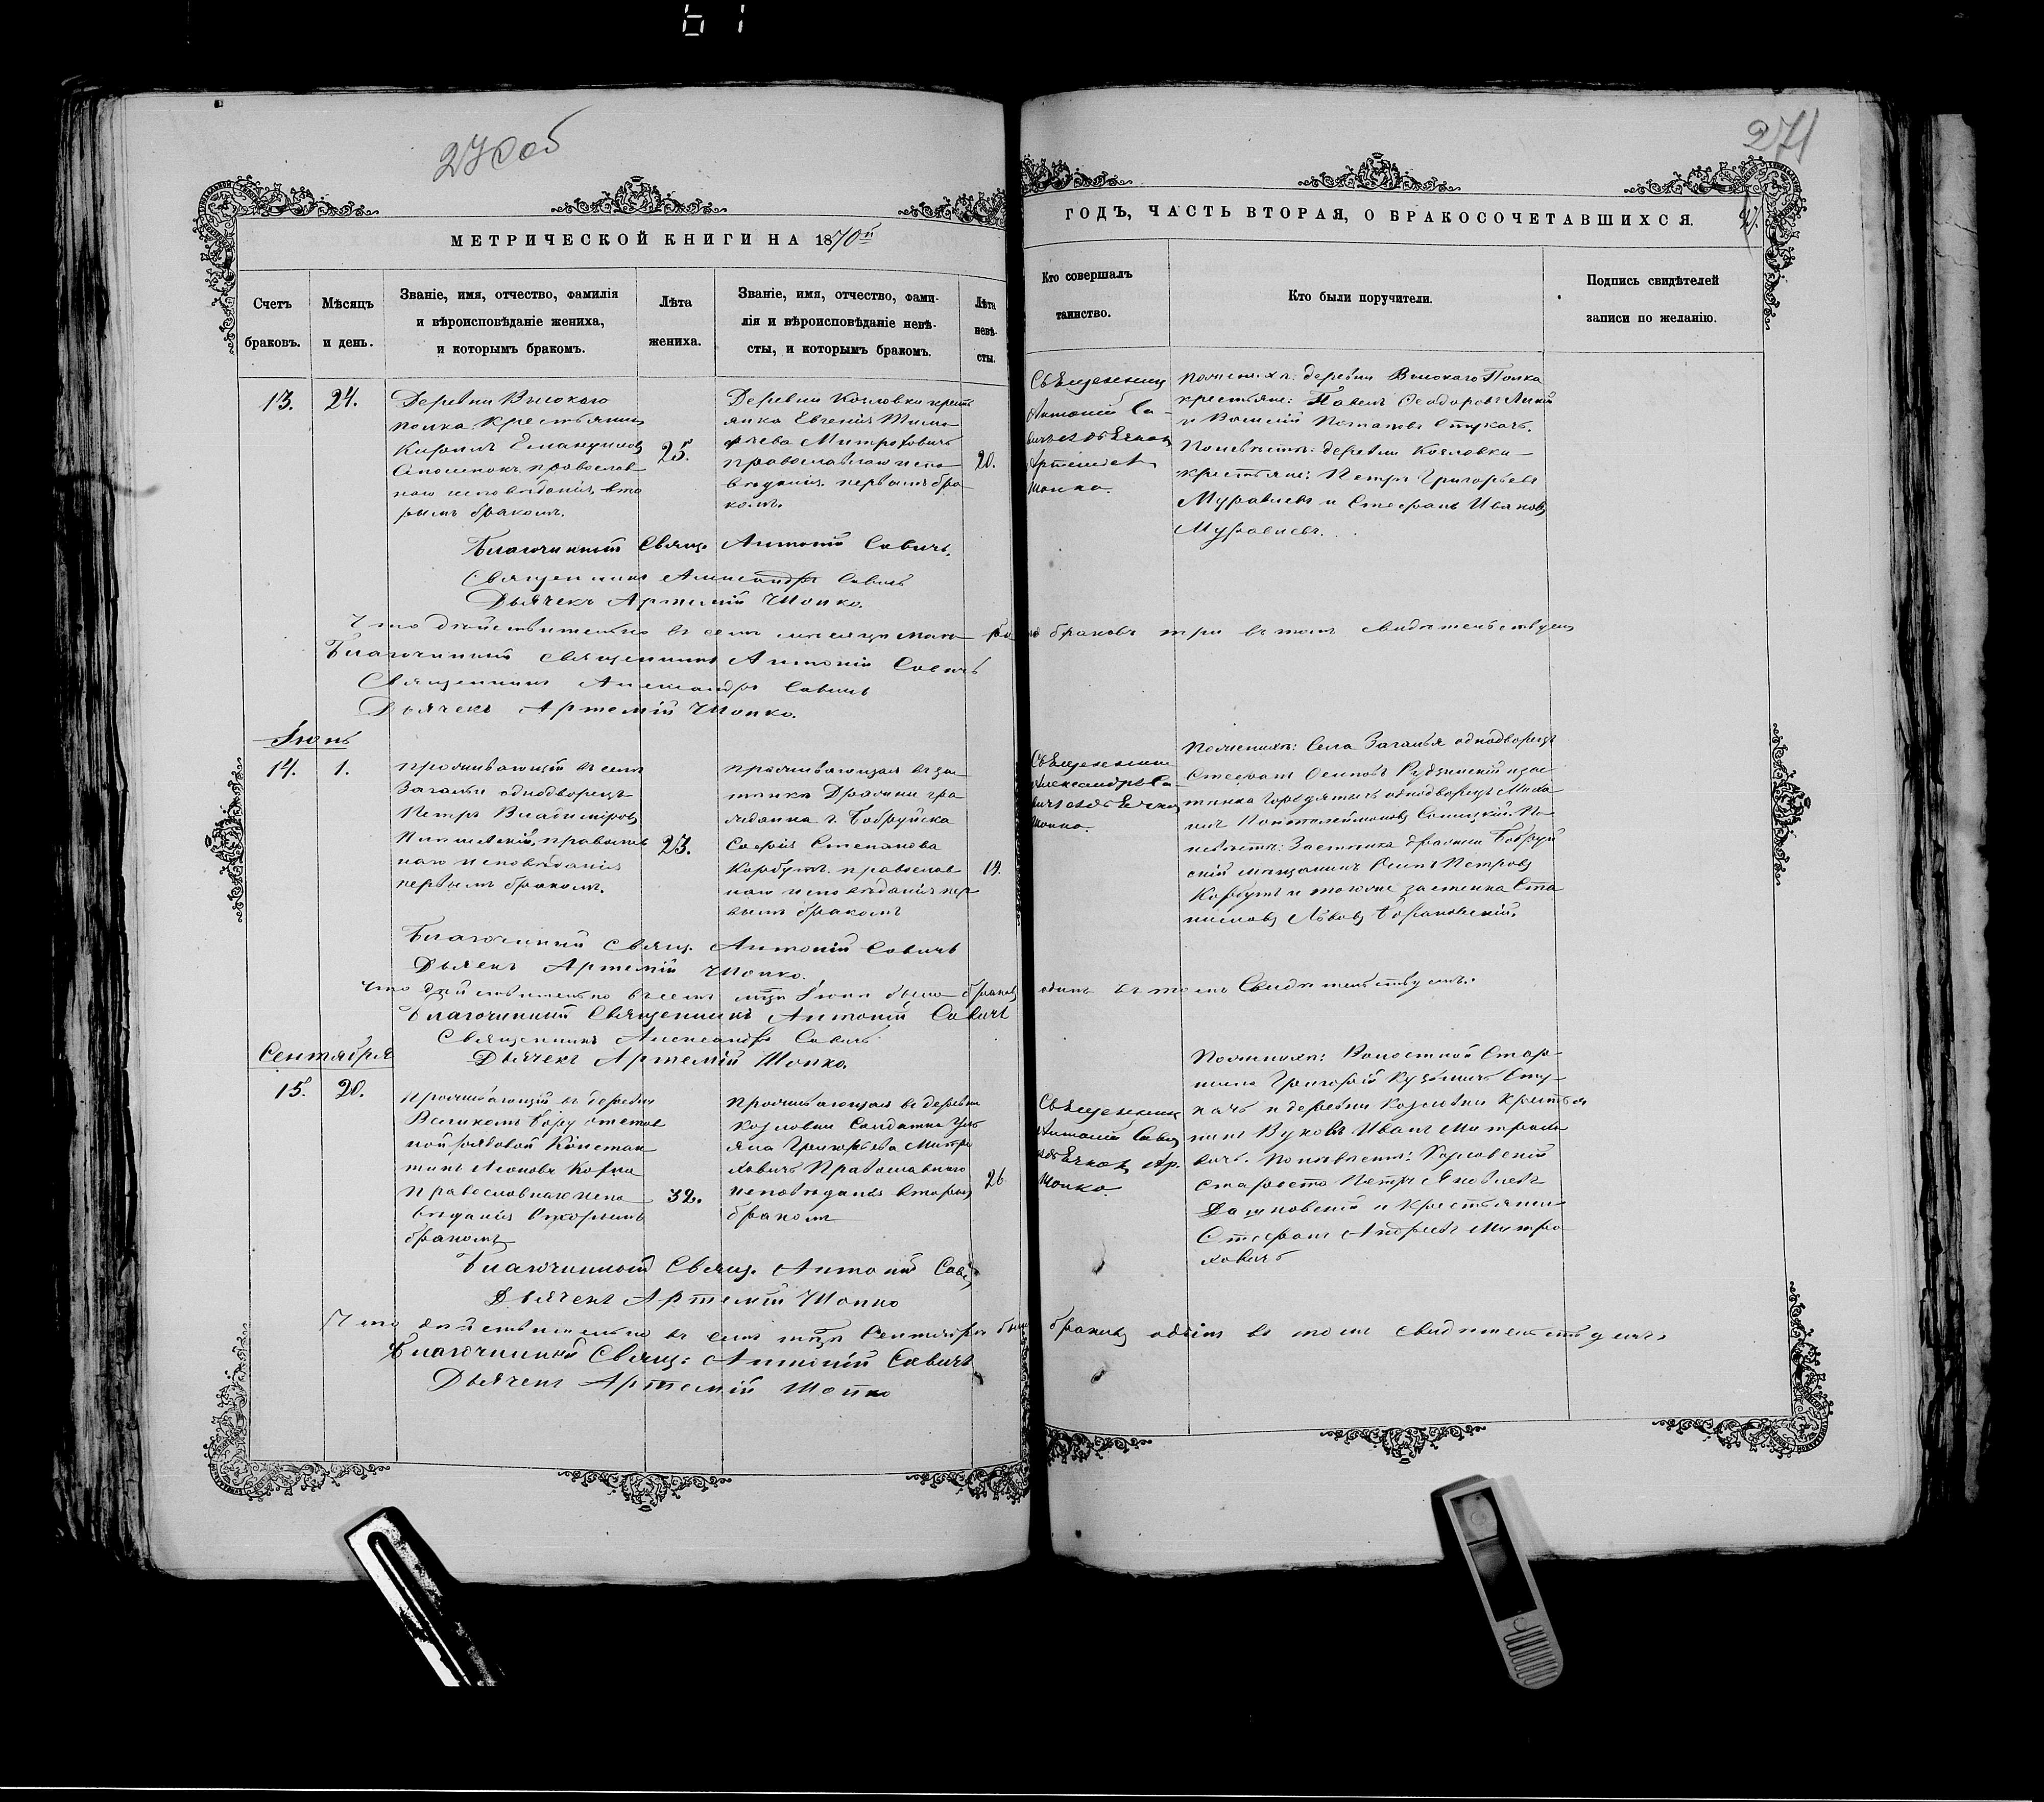 270 об
271
МЕТРИЧЕСКОЙ КНИГИ НА 1870й
ГОДЪ, ЧАСТЬ ВТОРАЯ, О БРАКОСОЧЕТАВШИХСЯ.
Счетъ браковъ.
Мѣсяцъ и день.
Званіе, имя, отчество, фамилія
и вѣроисповѣданіе жениха,
и которымъ бракомъ.
Лѣта
жениха.
Званіе, имя, отчество, фами-
лія и вѣроисповѣданіе невѣ-
сты, и которымъ бракомъ.
Лѣта
невѣ-
сты.
Кто совершалъ
таинство.
Кто были поручители.
Подпись свидѣтелей
записи по желанію.
13.
24.
Деревни Высокаго
полка крестьянинъ
Кирилъ
православ-
наго исповѣданія, вто
рымъ бракомъ.
25.
Деревни Козловки крестъ
янка Евгенія Тимо
фѣева Митроховичъ
православнаго испо-
вѣданія первымъ бра-
комъ.
20.
Священникъ
Антоній Са-
вичъ съ дьячкомъ
Артеміемъ
Шопко.
По женихѣ: деревни Высокаго Полка
крестьяне: Павелъ Ѳеодоровъ
и Василій Потаповъ Стукачъ.
По невѣстѣ: деревни Козловки
крестьяне: Петръ Григорьевъ
Муравлевъ и Стефанъ Ивановъ
Муравлевъ.
Благочинный Свящ. Антоній Савичъ.
Священникъ Александръ Савичъ
Дьячекъ Артемій Шопко.
Что дѣйствительно въ семъ мѣсяцѣ Маѣ браковъ три въ томъ свидѣтельствуемъ
Благочинный священникъ Антоній Савичъ
Священникъ Александръ Савичъ
Дьячекъ Артемій Шопко.
Іюнь
14.
1.
проживающій въ селѣ
Загальи однодворецъ
Петръ Владиміровъ
правосл
наго исповѣданія
первымъ бракомъ.
23.
проживающая въ за-
стѣнкѣ Дражни гра
жданка г. Бобруйска
Софія Степанова
Корбутъ православ
наго исповѣданія пер
вымъ бракомъ
19.
Священникъ
Александръ Са-
вичъ съ дьячкомъ
Шопко.
По женихѣ: Села Загалья однодворецъ
Стефанъ Осиповъ Рудзинскій и зас-
тѣнка однодворецъ Миха
илъ По
невѣстѣ: Застѣнка Дражни Бобруй
скій мѣщанинъ Осипъ Петровъ
Корбутъ и тогоже застѣнка Ста
ниславъ Львовъ
Благочинный Свящ. Антоній Савичъ
Дьячекъ Артемій Шопко.
Что дѣйствительно въ семъ мцѣ Іюнѣ было браковъ одинъ въ томъ Свидѣтельствуемъ:
Благочинный Священникъ Антоній Савичъ
Священникъ Александръ Савичъ
Дьячекъ Артемій Шопко.
Сентября
15.
20.
Проживающій въ деревнѣ
Великомъ Бору отстав
ной рядовой Констан
тинъ Леоновъ
Православнаго испо
вѣданія вторымъ
бракомъ
32.
Проживающая въ деревнѣ
Козловки Солдатка Уль
яна Григорьева Митро
ховичъ Православнаго
исповѣданія вторымъ
бракомъ
26
Священникъ
Антоній Савичъ
съ дьячкомъ Ар.
Шопко.
По женихѣ: Волостной Стар-
шина Григорій Кузьминъ Сту-
качъ и деревни Козловки Крестья
нинъ Иванъ Митрохо
вичъ. По невѣстѣ: Козловскій
староста Петръ Яковлевъ
Дашковскій и Крестьянинъ
Стефанъ Андреевъ Митро
ховичъ
Благочинный Свящ. Антоній Савичъ
Дьячекъ Артемій Шопко
Что дѣйствительно въ семъ мцѣ Сентябрѣ было браковъ одинъ въ томъ свидѣтельствуемъ
Благочинный Свящ: Антоній Савичъ
Дьячекъ Артемій Шопко